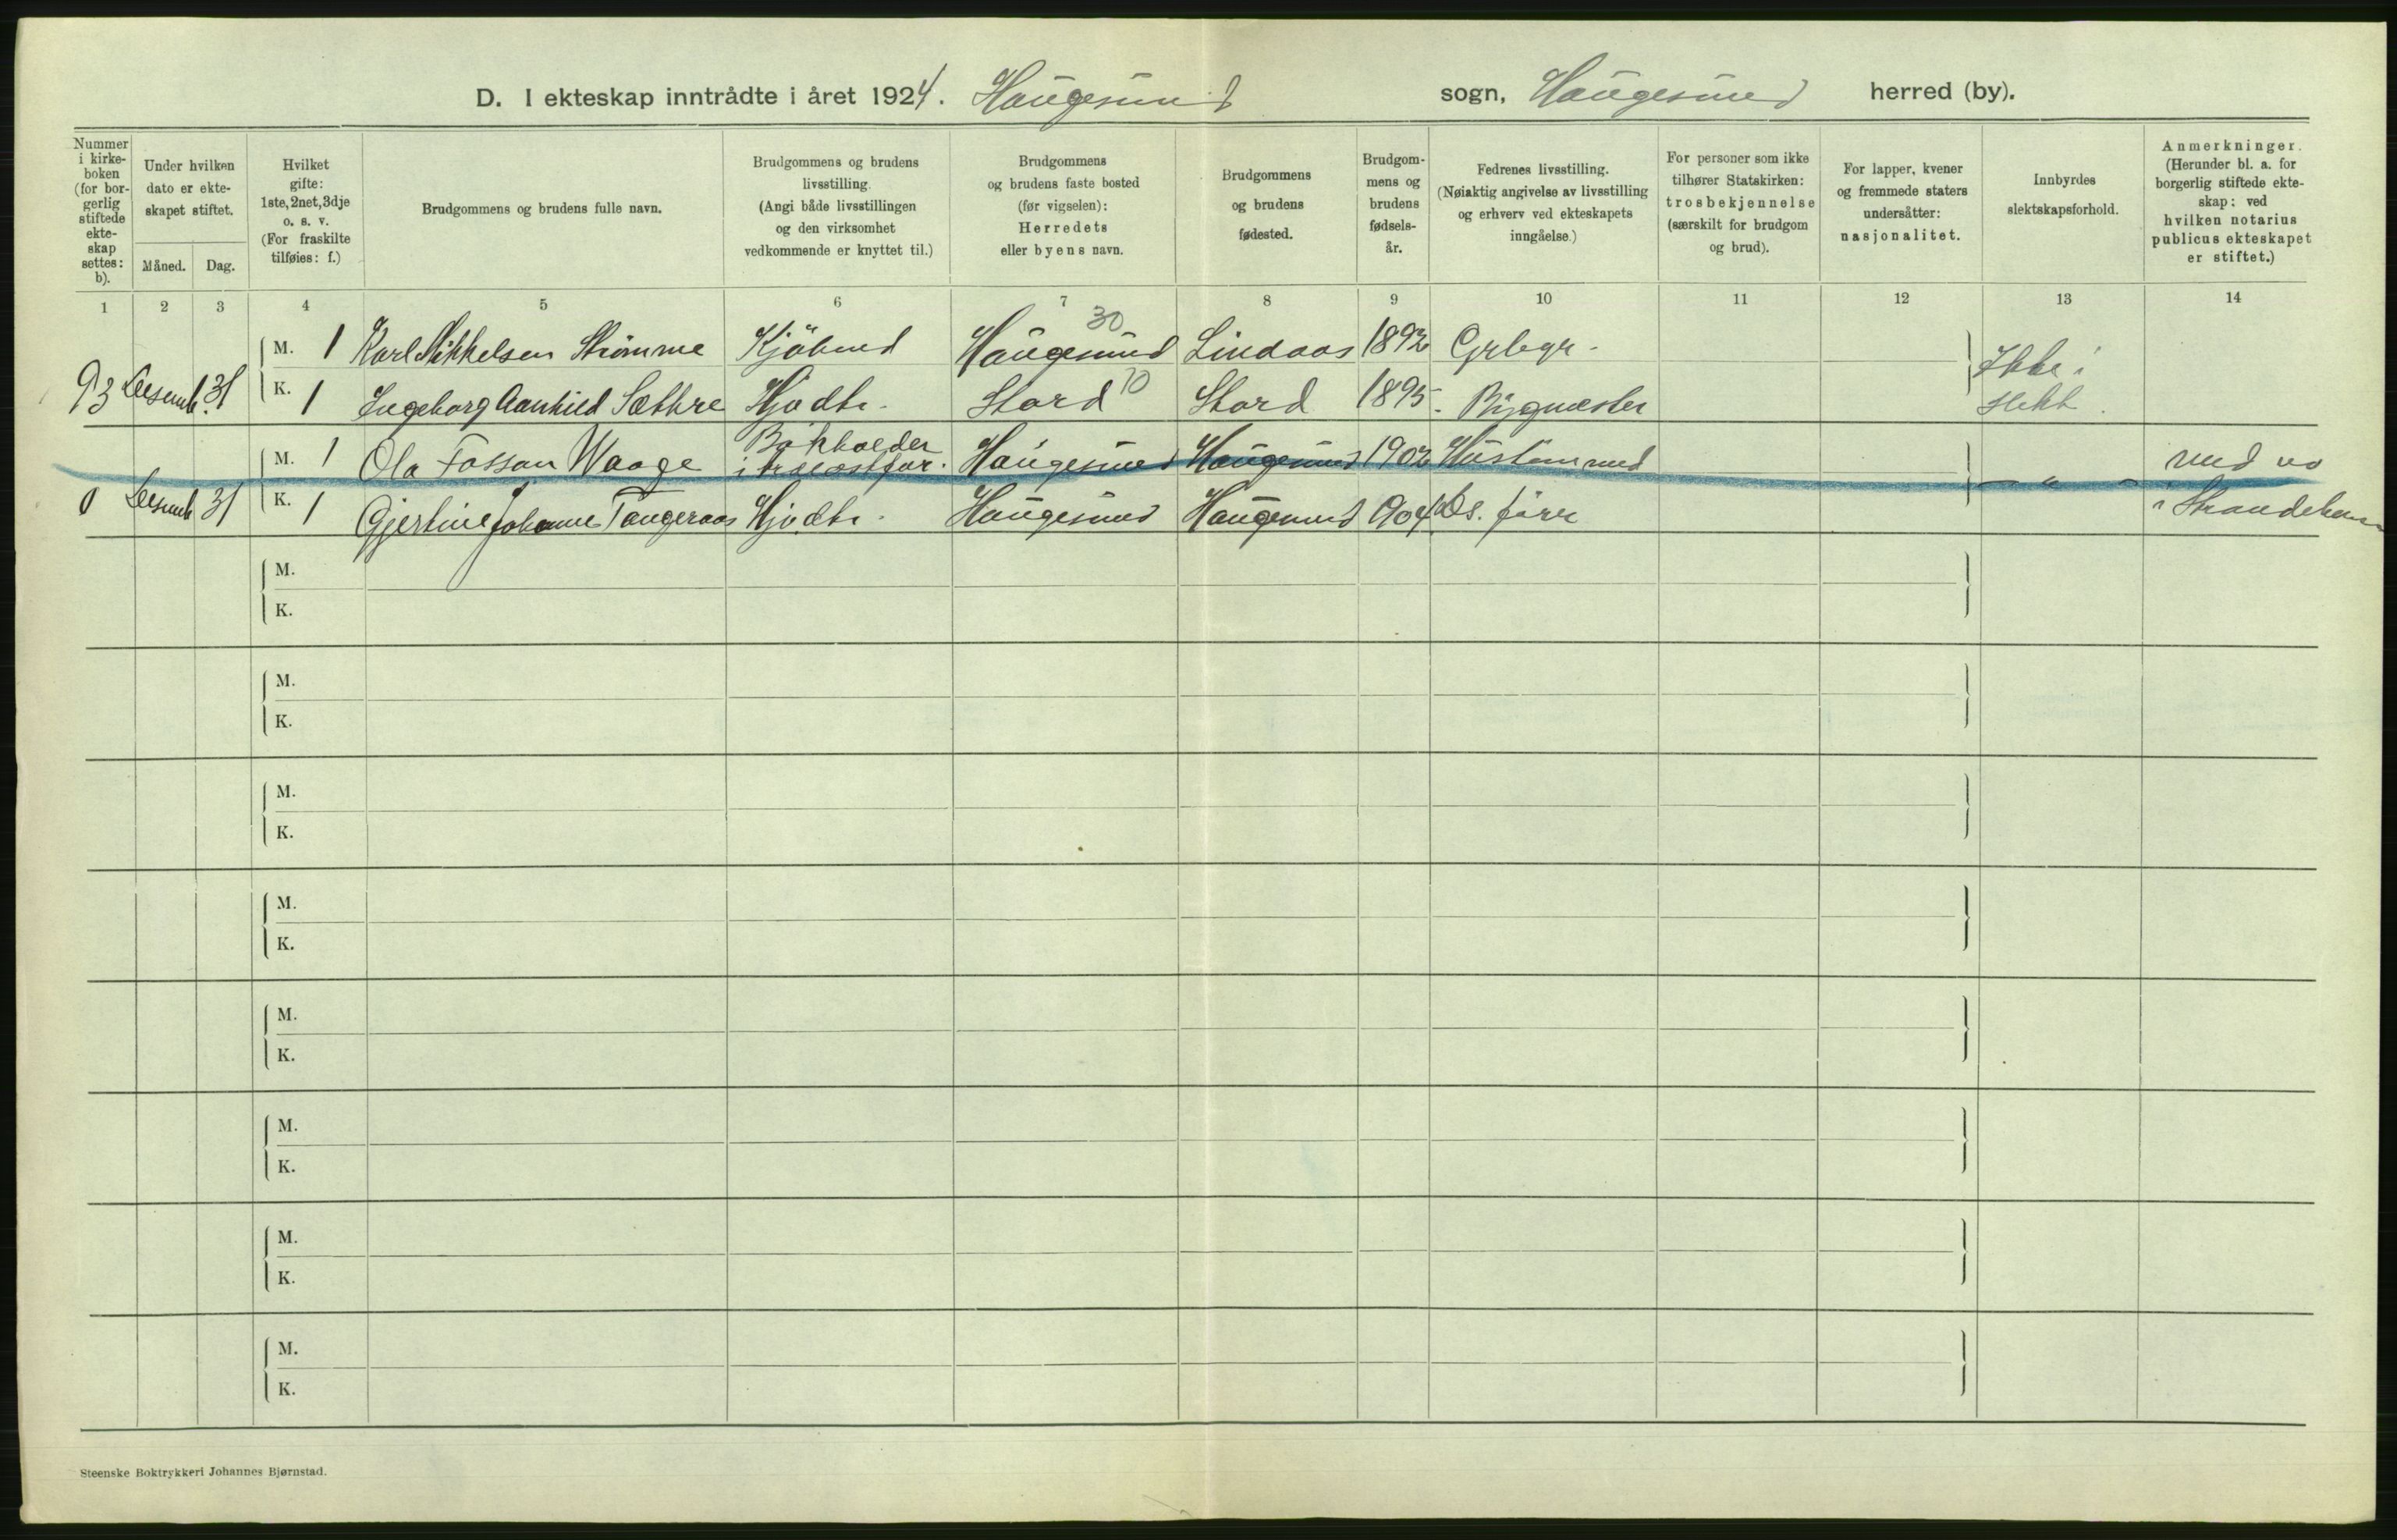 D. I ekteskap inntrådte i året 1924. Haugesund sogn, Haugesund herred (by).
Nummer
i kirke-
boken
(for bor-
gerlig
stiftede
ekte-
skap
settes:
b).
Under hvilken
dato er ekte-
skapet stiftet.
Måned. Dag.
Hvilket
gifte:
1ste, 2net, 3dje
o. s. v.
(For fraskilte
tilføies: f.)
Brudgommens og brudens fulle navn.
Brudgommens og brudens
livsstilling
(Angi både livsstillingen
og den virksomhet
vedkommende er knyttet til.)
Brudgommens
og brudens faste bosted
(før vigselen):
Herredets
eller byens navn.
Brudgommens
og brudens
fødested.
Brudgom-
mens og
brudens
fødsels-
år.
Fedrenes livsstilling.
(Nøiaktig angivelse av livsstilling
og erhverv ved ekteskapets
inngåelse.)
For personer som ikke
tilhører Statskirken:
trosbekjennelse
(særskilt for brudgom
og brud).
For lapper, kvener
og fremmede staters
undersåtter:
nasjonalitet.
Innbyrdes
slektskapsforhold.
Anmerkninger.
(Herunder bl. a. for
borgerlig stiftede ekte-
skap: ved
hvilken notarius
publicus ekteskapet
er stiftet.)
1 2 3 4 5 6 7 8 9 10 11 12 13 14
30
M. 1 Karl Mikkelsen Strömme Kjöbmd Haugesund Lindaas 1892 Grbgr.
93 Desemb. 31 Ikke i
K. 1 Ingeborg Aanhild Sæthre Hjvdtr. Stord 10 Stord 1895. Bygmester
slekt.
Bokholder
M. 1 Ola Fossan Waage Haugesund Haugesund 1902
0 Desemb 31 "
K. 1 Gjertine Johanne Tangeraas Hjvdtr. Haugesund Haugesund 904
i
M.
K.
M.
K.
M.
K.
M.
K.
M.
K.
M.
K.
M.
K.
M.
K.
Steenske Boktrykkeri Johannes Bjørnstad.